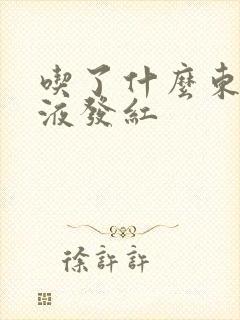 喫了什麼東
液發紅
徐許許